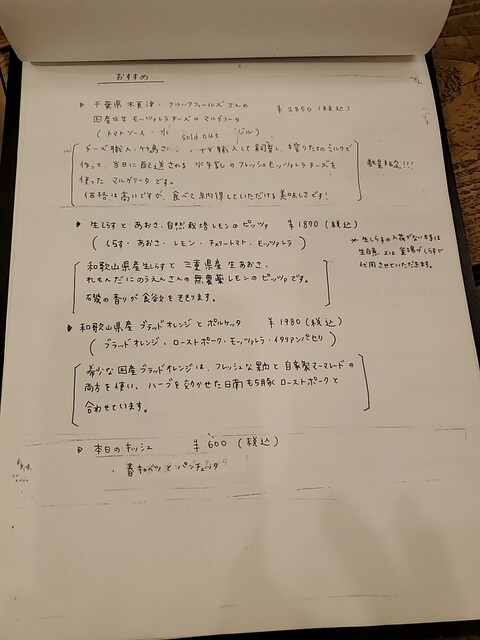 おすすめ
▷ 千葉県木更津・クルックフィールズさんの ¥2850(税込)
国産水牛モッツァレラチーズのマルゲリータ
(トマトソース・水 sold out ジル)
チーズ職人・竹島さ 輸入して飼育し、搾りたてのミルクで
作って、当日に配送される 水牛乳のフレッシュモッツァレラチーズを
使った マルゲリータです。
価格は高いですが、食べて納得していただける美味しさです!
数量限定!!!
▷ 生しらすと あおさ、自然栽培レモンのピッツァ ¥1870(税込)
(しらす・あおさ・レモン・チェリートマト・モッツァレラ)
※生しらすの入荷がない時は
生白魚 又は 釜揚げしらすで
代用させていただきます。
和歌山県産生しらすと 三重県産 生あおさ、
れもんだにのうえんさんの無農薬レモンのピッツァです。
磯の香りが食欲をそそります。
▷ 和歌山県産 ブラッドオレンジとポルケッタ ¥1980(税込)
(ブラッドオレンジ・ローストポーク・モッツァレラ・イタリアンパセリ)
希少な国産ブラッドオレンジは、フレッシュな果肉と自家製マーマレードの
両方を使い、ハーブを効かせた日南もち豚ローストポークと
合わせています。
▷ 本日のキッシュ ¥600(税込)
・春キャベツとパンチェッタ